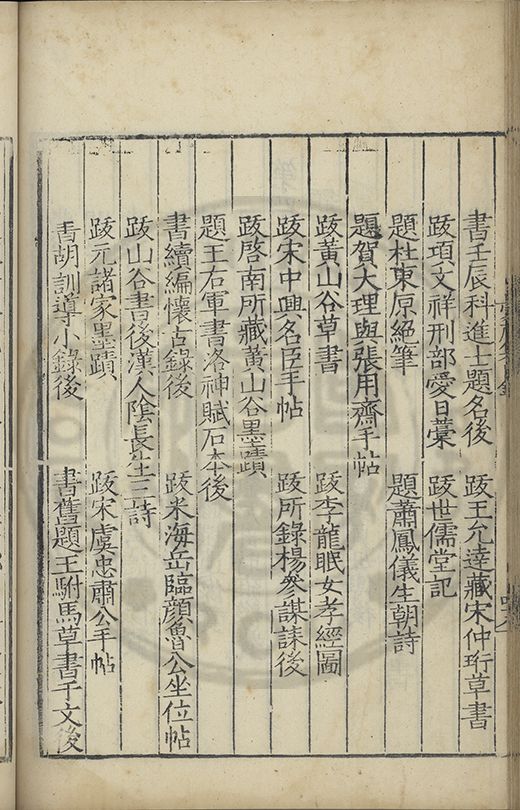 書壬辰科進士題名後 跋王允達藏宋仲珩草書
跋項文祥刑部愛日藁 跋世儒堂記
題杜東原絕筆 題蕭鳳儀生朝詩
題賀大理與張用齋手帖
跋黃山谷草書 跋李龍眠女孝經圖
跋宋中興名臣手帖 跋所錄楊參謀誄後
跋啓南所藏黃山谷墨蹟
題王右軍書洛神賦石本後
書續編懷古錄後 跋米海岳臨顏魯公坐位帖
跋山谷書後漢人陰長生三詩
跋元諸家墨蹟 跋宋虞忠肅公手帖
書胡訓導小錄後 書舊題王駙馬草書千文後